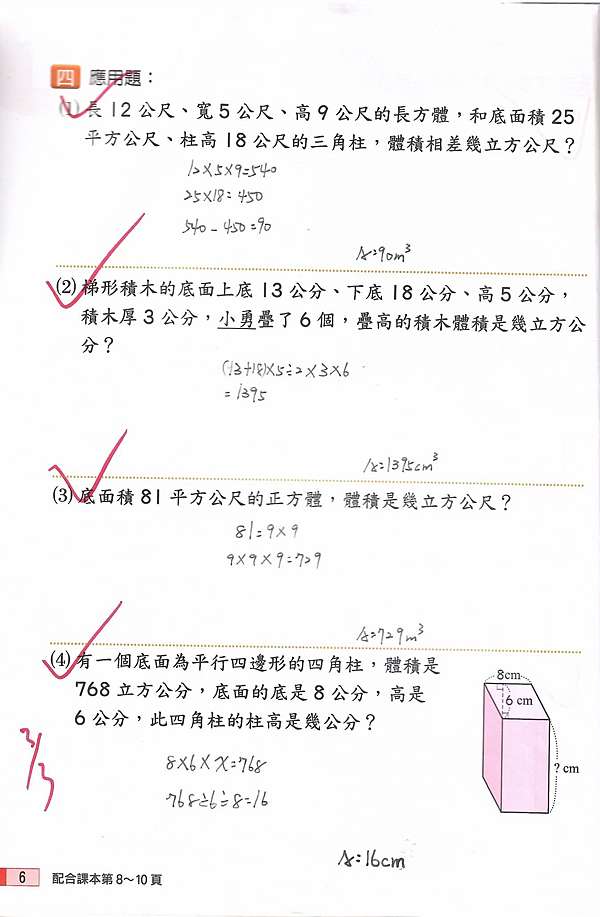 四 應用題：
(1) 長 12 公尺、寬 5 公尺、高 9 公尺的長方體，和底面積 25
平方公尺、柱高 18 公尺的三角柱，體積相差幾立方公尺？
12×5×9=540
25×18=450
540-450=90
A:90m³
(2) 梯形積木的底面上底 13 公分、下底 18 公分、高 5 公分，
積木厚 3 公分，小勇疊了 6 個，疊高的積木體積是幾立方公
分？
(13+18)×5÷2×3×6
=1395
A:1395cm³
(3) 底面積 81 平方公尺的正方體，體積是幾立方公尺？
81=9×9
9×9×9=729
A:729m³
(4) 有一個底面為平行四邊形的四角柱，體積是
768 立方公分，底面的底是 8 公分，高是
6 公分，此四角柱的柱高是幾公分？
8cm
6 cm
? cm
8×6×x=768
768÷6÷8=16
A:16cm
3/3
6 配合課本第 8～10 頁